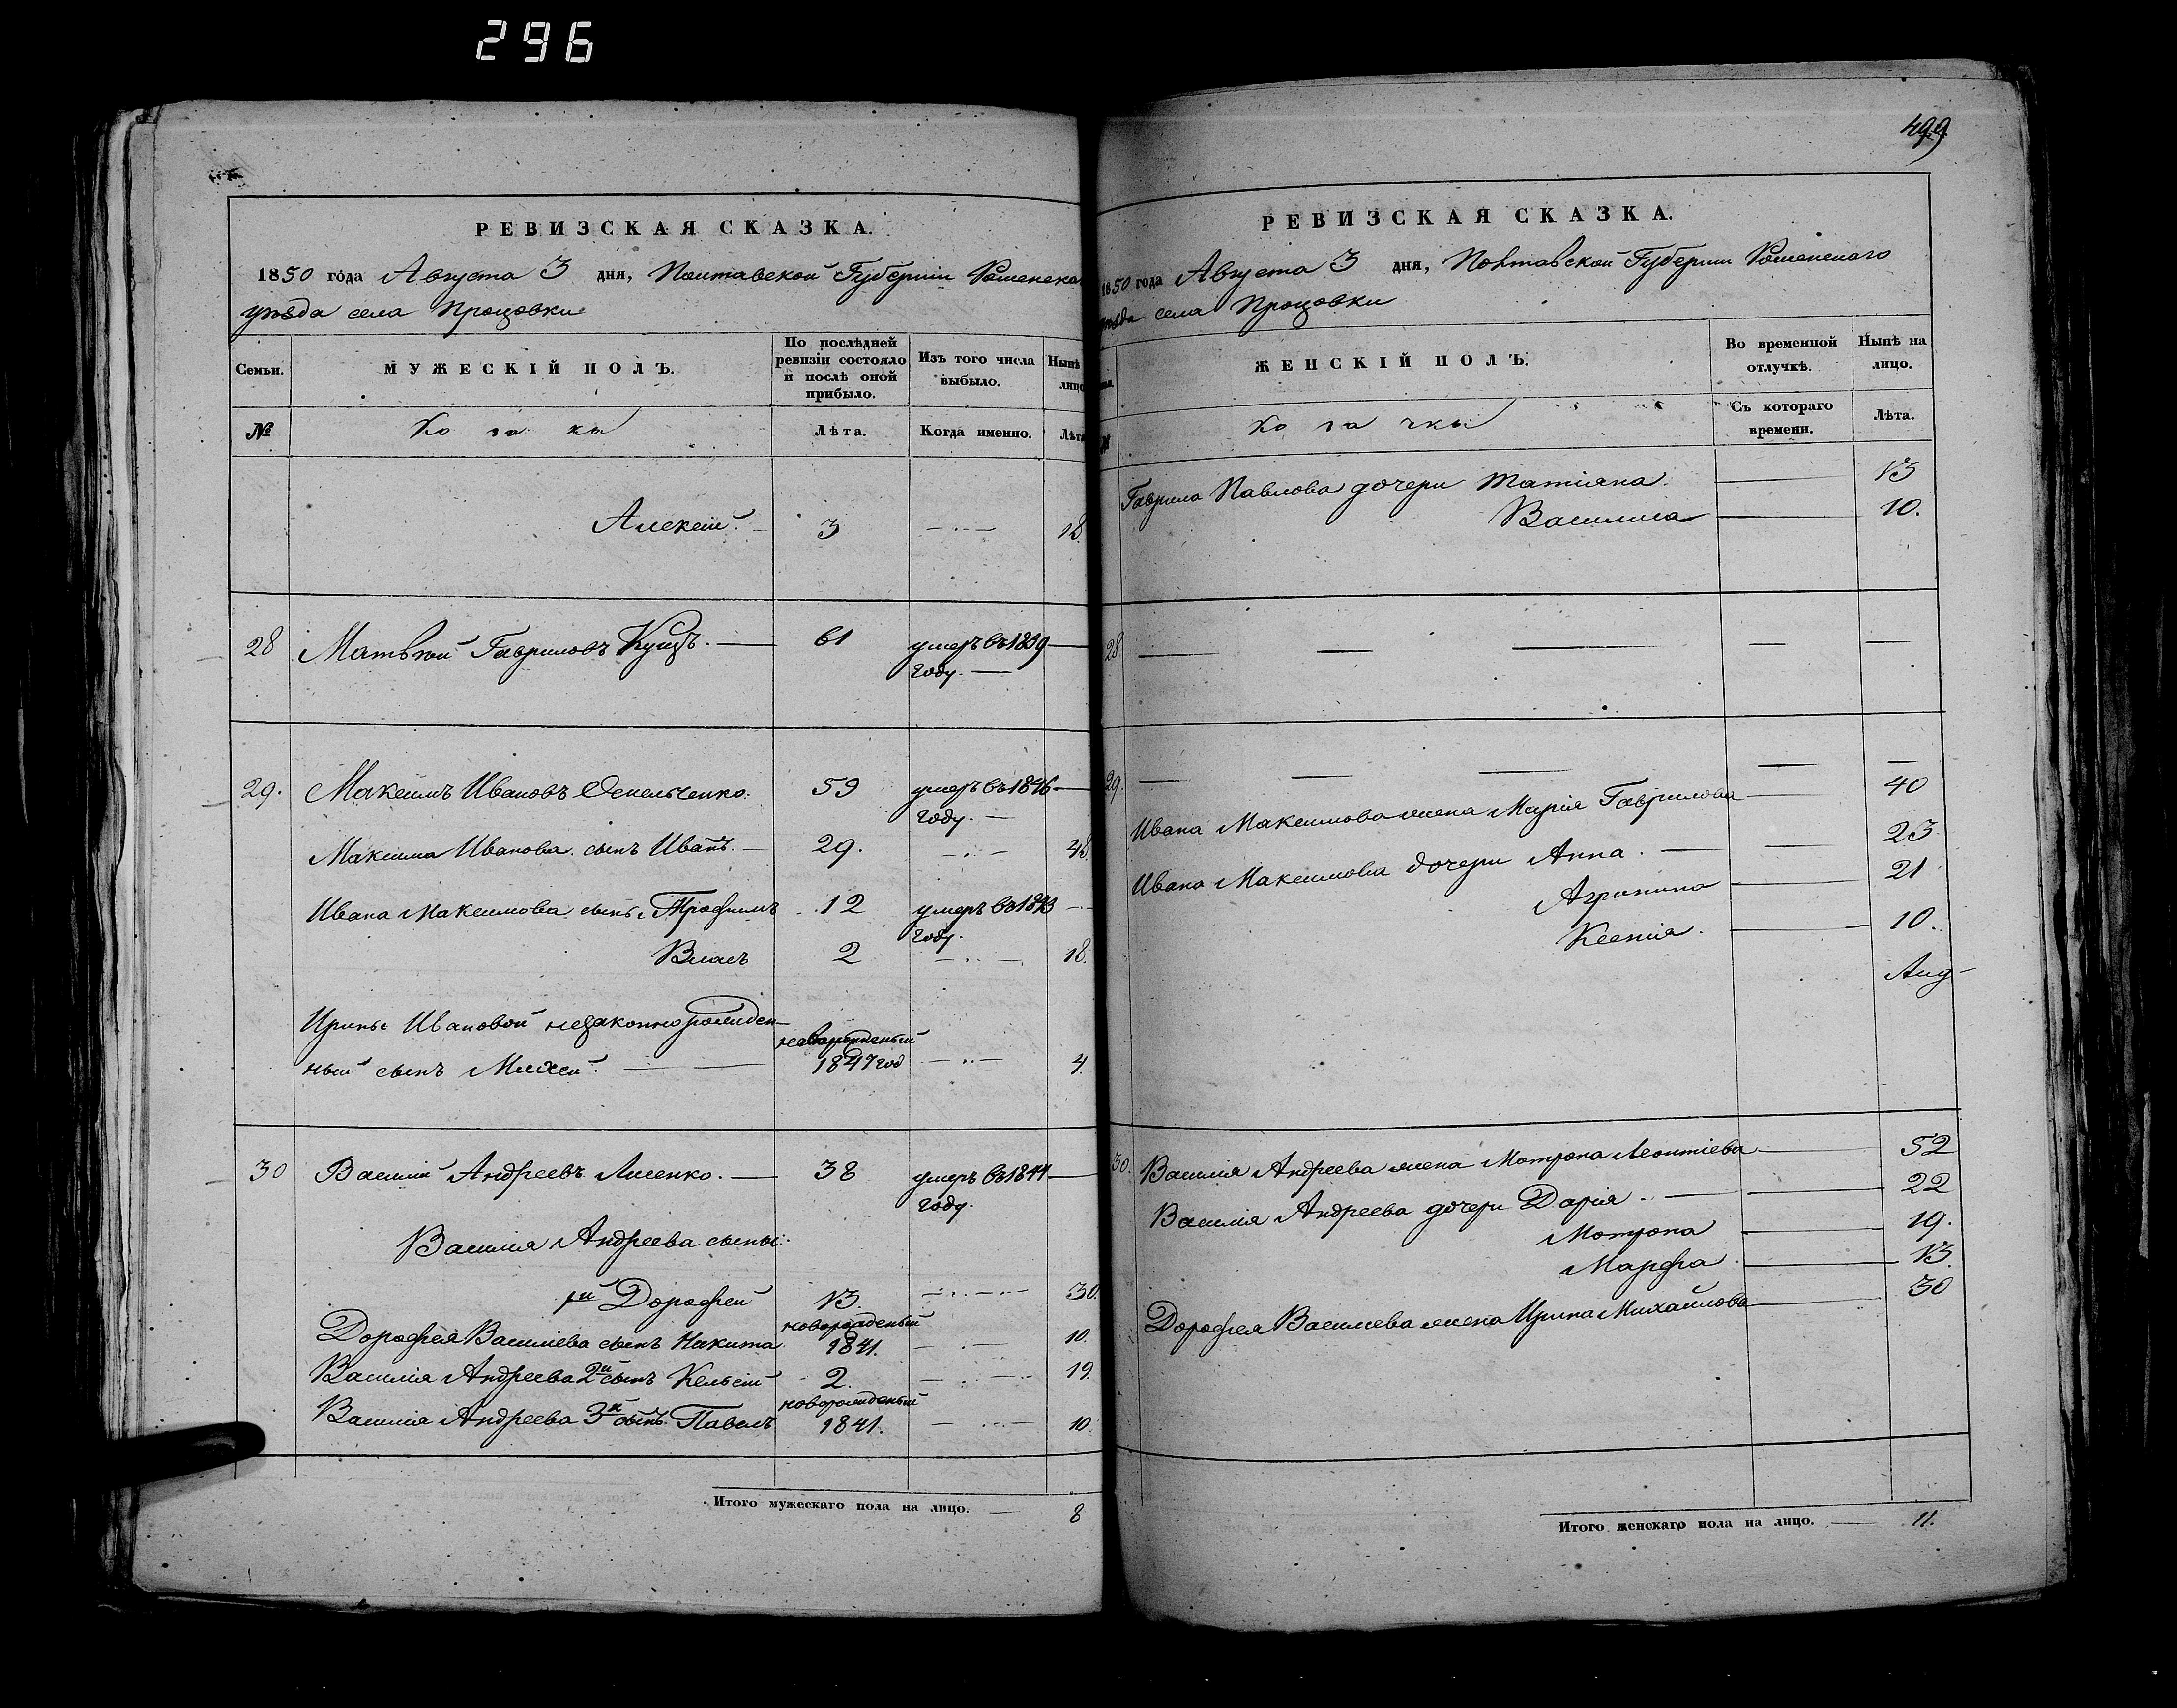 296
РЕВИЗСКАЯ СКАЗКА.
1850 года Августа 3 дня, Полтавской Губерніи Роменска
уѣзда села Процовки
Семьи.
МУЖЕСКІЙ ПОЛЪ.
По послѣдней
ревизіи состояло
и послѣ оной
прибыло.
Изъ того числа
выбыло.
Нынѣ
лицо
№
Ко за ки
Лѣта.
Когда именно.
Лѣта
Алексей. 3 18.
28 Матвѣй Гавриловъ Куцъ. 61 умеръ въ 1839
году.
29. Максимъ Ивановъ 59 умеръ въ 1846
году.
Максима Иванова сынъ Иванъ. 29. 48.
Ивана Максимова сынъ Трофимъ 12 умеръ въ 1843
году.
Власъ 2 18.
Ирины Ивановой незаконнорожден-
новорожденый
ный сынъ Михей. 1847 год 4.
30 Василий Андреевъ Лисенко. 38 умеръ въ 1844
году.
Василія Андреева сыны:
1й Дорофей 13. 30.
новорожденый
Дорофея Василіева сынъ Никита 1841. 10.
Василія Андреева 2й сынъ Кельсій 2. 19.
новорожденый
Василія Андреева 3й сынъ Павелъ 1841. 10.
Итого мужескаго пола на лицо. 8
499
РЕВИЗСКАЯ СКАЗКА.
1850 года Августа 3 дня, Полтавской Губерніи Роменскаго
уѣзда села Процовки
ЖЕНСКІЙ ПОЛЪ.
Во временной
отлучкѣ.
Нынѣ на
лицо.
№
Ко за чки
Съ котораго
времени.
Лѣта.
Гаврила Павлова дочери Татіяна. 13
Василиса 10.
28
29.
Ивана Максимова жена Марія Гаврилова 40
Ивана Максимова дочери Анна. 23.
Агрипина 21
Ксенія. 10.
30. Василія Андреева жена Мотрона Леонтіева 52
Василія Андреева дочери Дарія. 22
Мотрона 19.
Марфа. 13.
Дорофея Василіева жена Ирина Михайлова 30
Итого женскаго пола на лицо. 11.